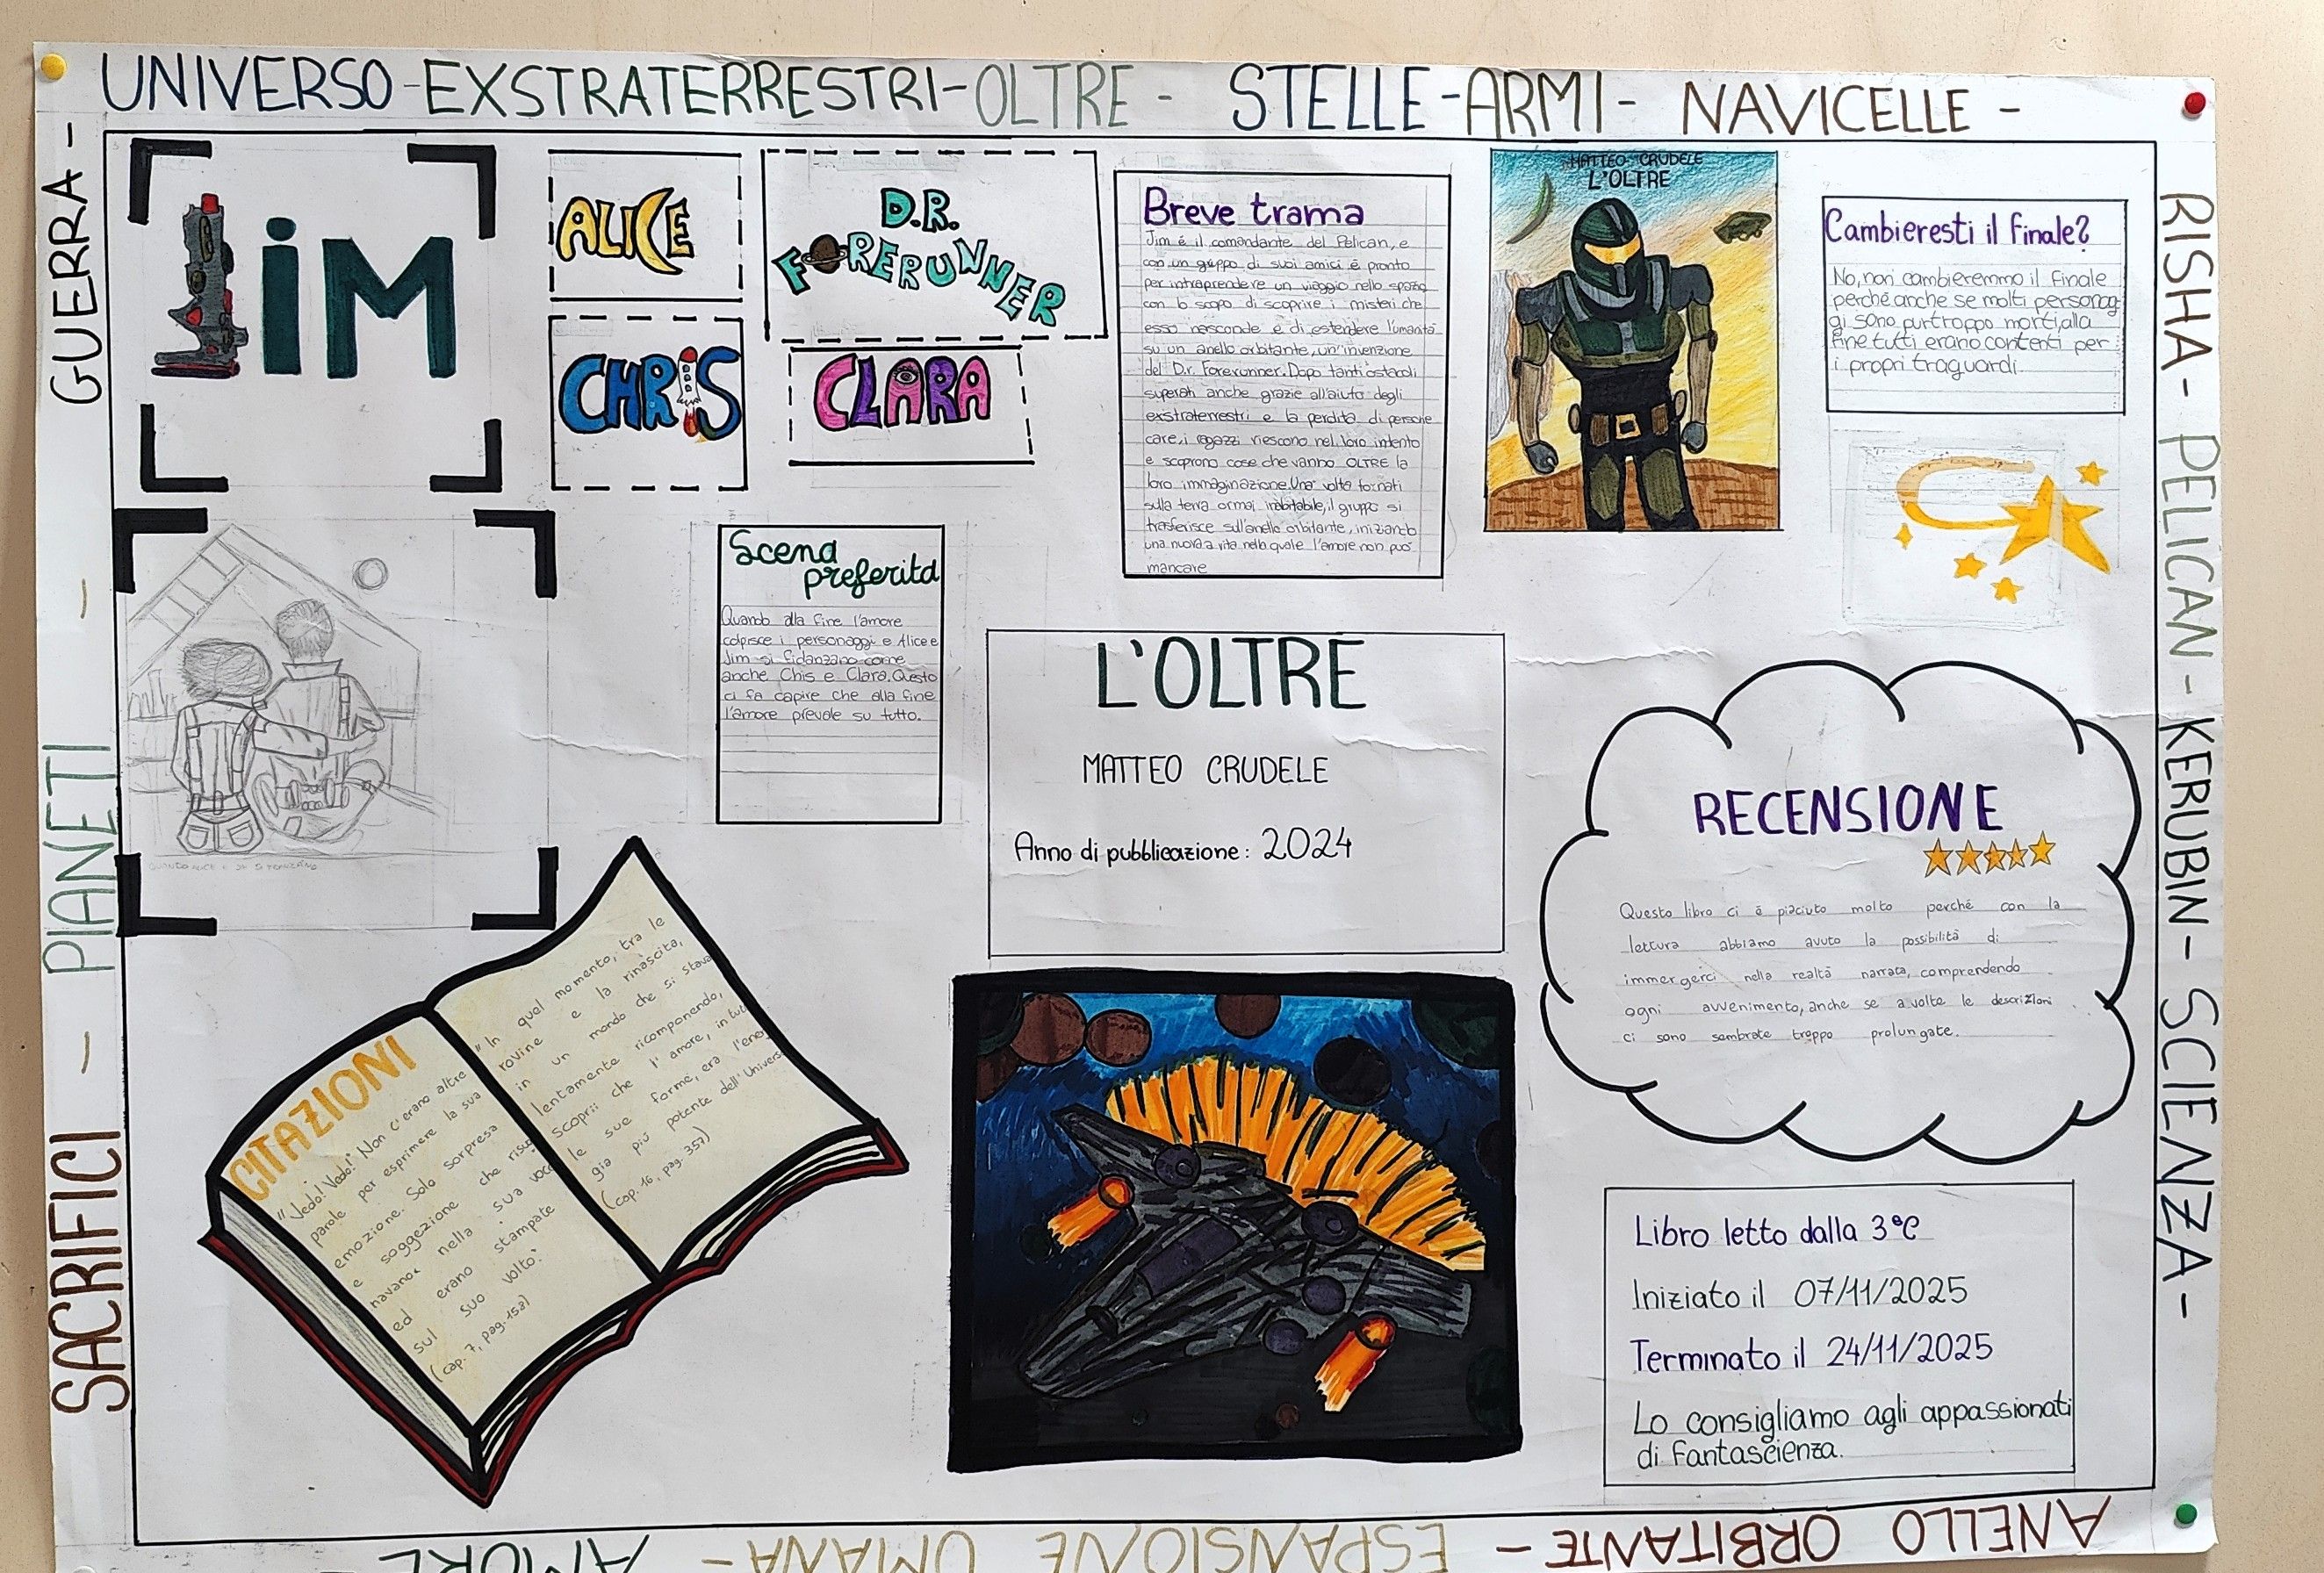 UNIVERSO-EXSTRATERRESTRI-OLTRE - STELLE-ARMI- NAVICELLE -
RISHA- PELICAN- KERUBIN- SCIENZA-
ANELLO ORBITANTE - ESPANSIONE UMANA - AMORE
SACRIFICI - PIANETI - GUERRA -
JiM
ALICE
D.R.
FORERUNNER
CHRIS
CLARA
Breve trama
Jim é il comandante del Pelican, e
con un gruppo di suoi amici é pronto
per intraprendere un viaggio nello spazio
con lo scopo di scoprire i misteri che
esso nasconde e di estendere l'umanità
su un anello orbitante, un'invenzione
del D.r. Forerunner. Dopo tanti ostacoli
superati anche grazie all'aiuto degli
exstraterrestri e la perdita di persone
care, i ragazzi riescono nel loro intento
e scoprono cose che vanno OLTRE la
loro immaginazione. Una volta tornati
sulla terra ormai inabitabile, il gruppo si
trasferisce sull'anello orbitante, iniziando
una nuova vita nella quale l'amore non può
mancare
MATTEO CRUDELE
L'OLTRE
Cambieresti il finale?
No, non cambieremmo il finale
perché anche se molti personag
gi sono purtroppo morti, alla
fine tutti erano contenti per
i propri traguardi.
Scena
preferita
Quando alla fine l'amore
colpisce i personaggi e Alice e
Jim si fidanzano come
anche Chis e Clara. Questo
ci fa capire che alla fine
l'amore prevale su tutto.
L'OLTRE
MATTEO CRUDELE
Anno di pubblicazione: 2024
RECENSIONE
Questo libro ci é piaciuto molto perché con la
lettura abbiamo avuto la possibilità di
immergerci nella realtà narrata, comprendendo
ogni avvenimento, anche se a volte le descrizioni
ci sono sembrate troppo prolungate.
CITAZIONI
"Vedo! Vedo!" Non c'erano altre
parole per esprimere la sua
emozione. Solo sorpresa
e soggezione che risuo
navano nella sua voce
ed erano stampate
sul suo volto."
(cap. 7, pag. 153)
"In quel momento, tra le
rovine e la rinascita,
in un mondo che si stava
lentamente ricomponendo,
scoprii che l'amore, in tutte
le sue forme, era l'ener
gia più potente dell'Universo
(cap. 16, pag. 357)
Libro letto dalla 3°C
Iniziato il 07/11/2025
Terminato il 24/11/2025
Lo consigliamo agli appassionati
di fantascienza.